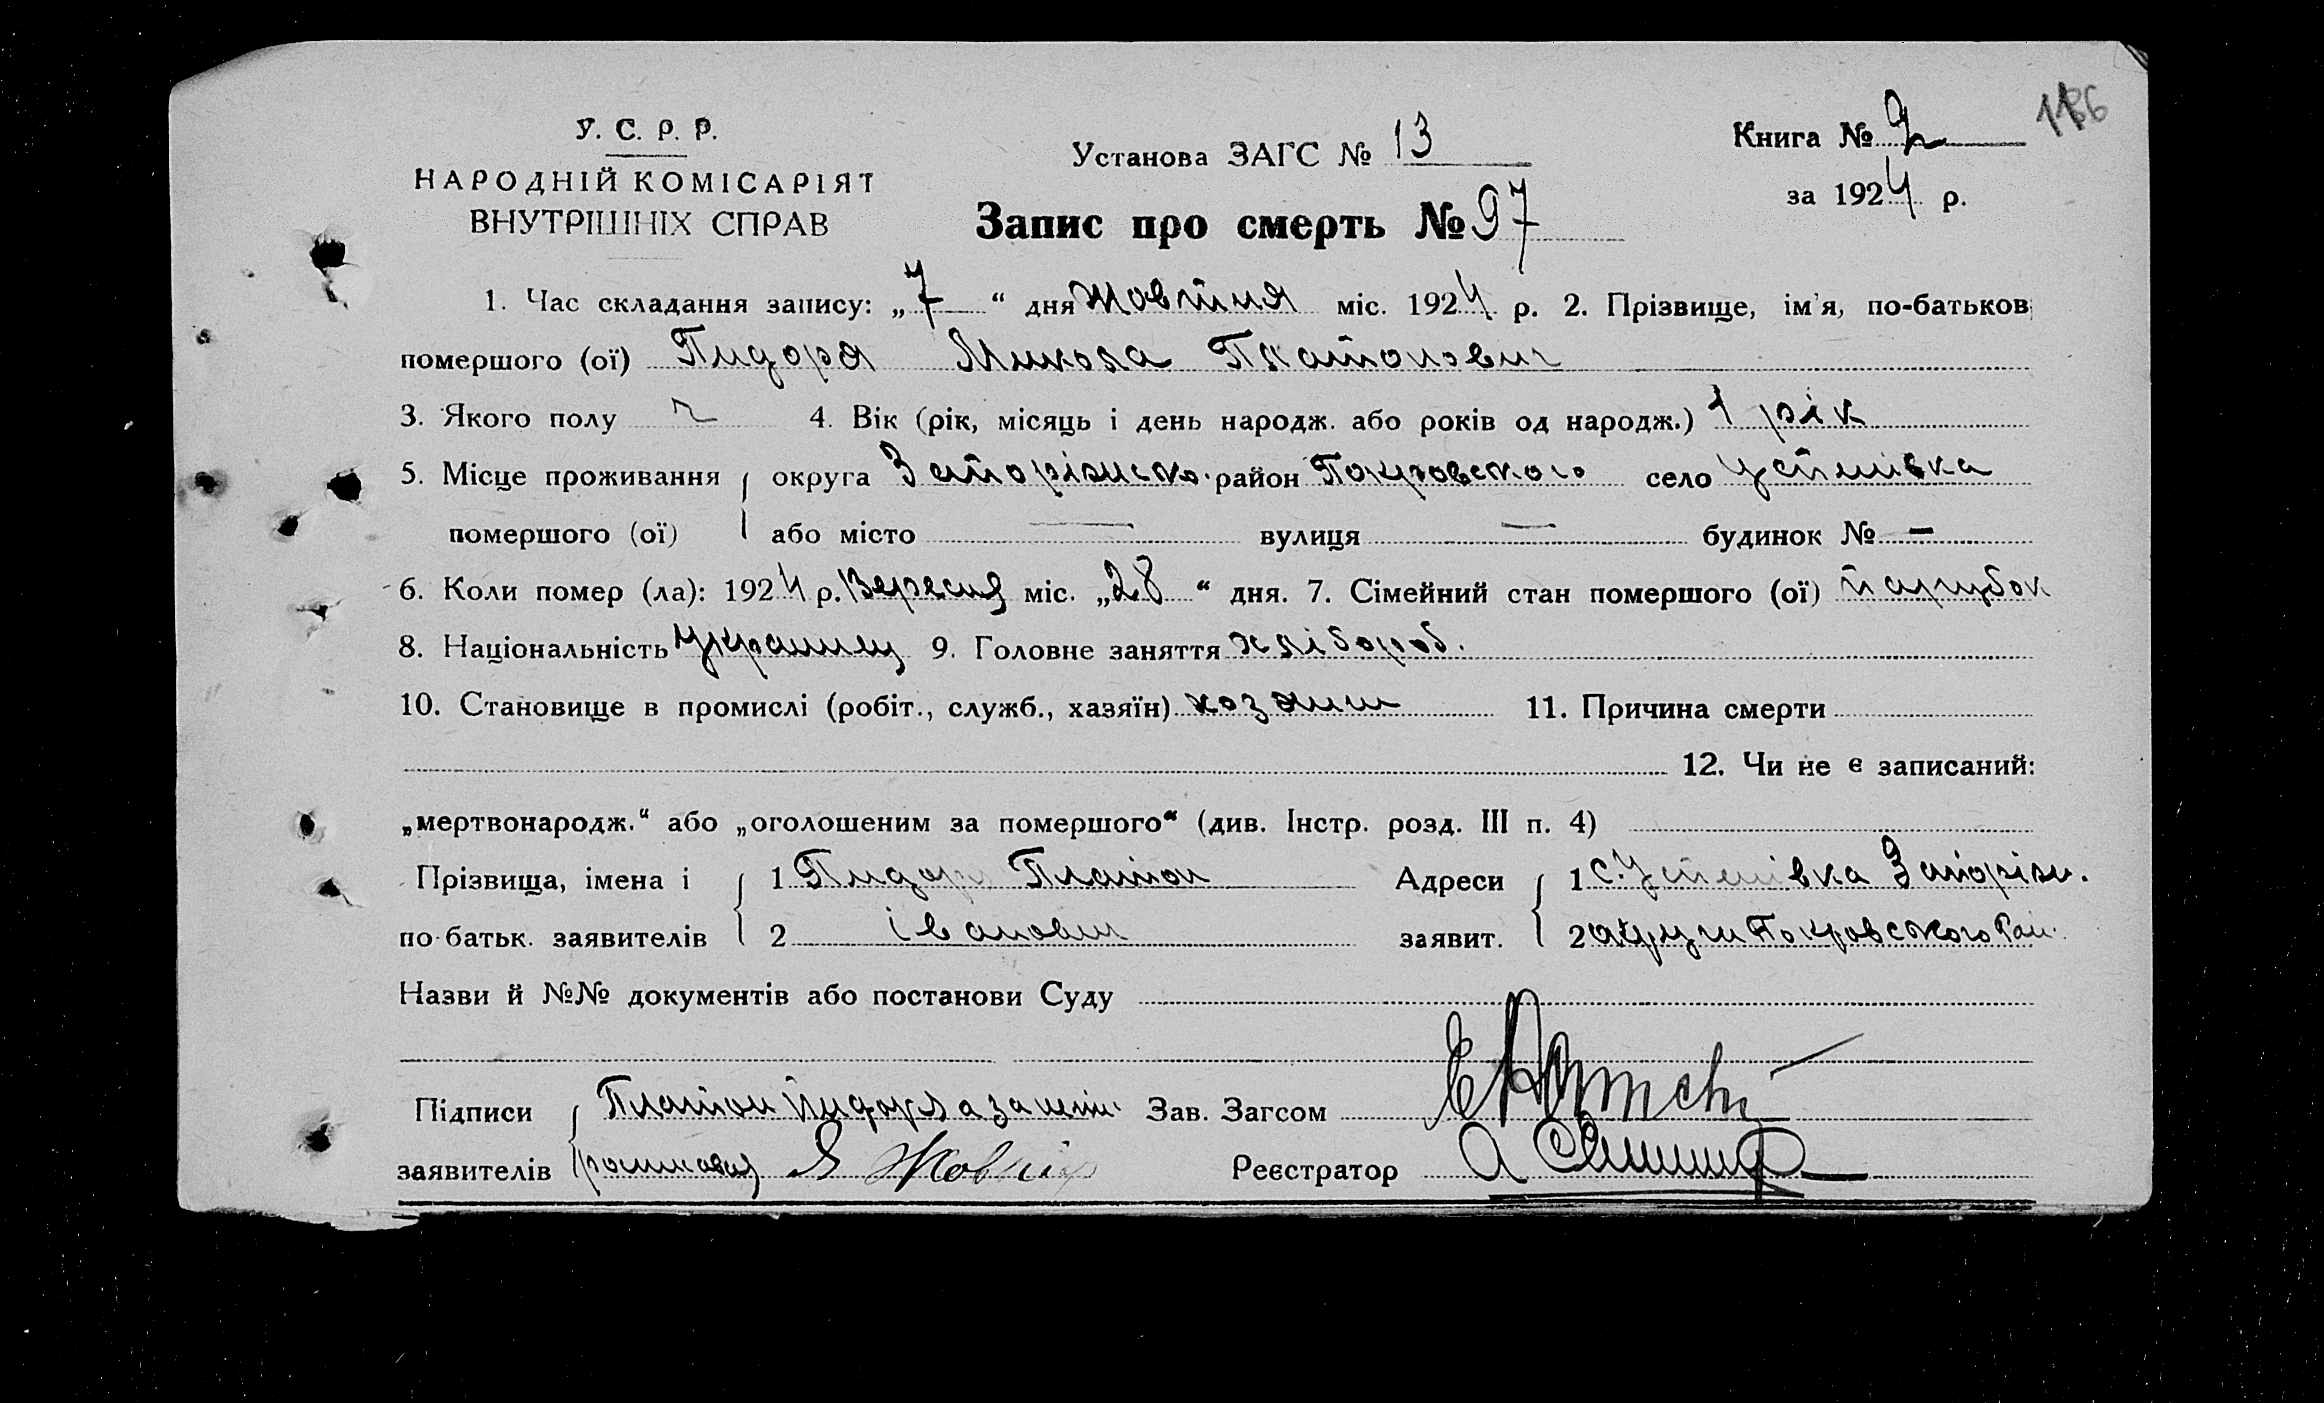 186
У. С. Р. Р.
НАРОДНІЙ КОМІСАРІЯТ
ВНУТРІШНІХ СПРАВ
Установа ЗАГС № 13
Книга № 2
за 1924 р.
Запис про смерть № 97
1. Час складання запису: „7“ дня Жовтня міс. 1924 р. 2. Прізвище, ім'я, по-батьков
помершого (ої) Пидоря Микола Платонович
3. Якого полу ч 4. Вік (рік, місяць і день народж. або років од народж.) 1 рік
5. Місце проживання округа Запоріжсько. район Покровского село Устинівка
помершого (ої) або місто — вулиця — будинок № —
6. Коли помер (ла): 1924 р. Вересня міс. „28“ дня. 7. Сімейний стан помершого (ої) парубок
8. Національність Украинец 9. Головне заняття хлібороб.
10. Становище в промислі (робіт., служб., хазяїн) хозяин 11. Причина смерти
12. Чи не є записаний:
„мертвонародж.“ або „оголошеним за помершого“ (див. Інстр. розд. III п. 4)
Прізвища, імена і 1 Пидоря Платон Адреси 1 с. Устинівка Запоріж.
по-батьк. заявителів 2 Іванович заявит. 2 округи Покровського Рай.
Назви й №№ документів або постанови Суду
Підписи Платон Пидоря а за неги Зав. Загсом
заявителів Я Реєстратор